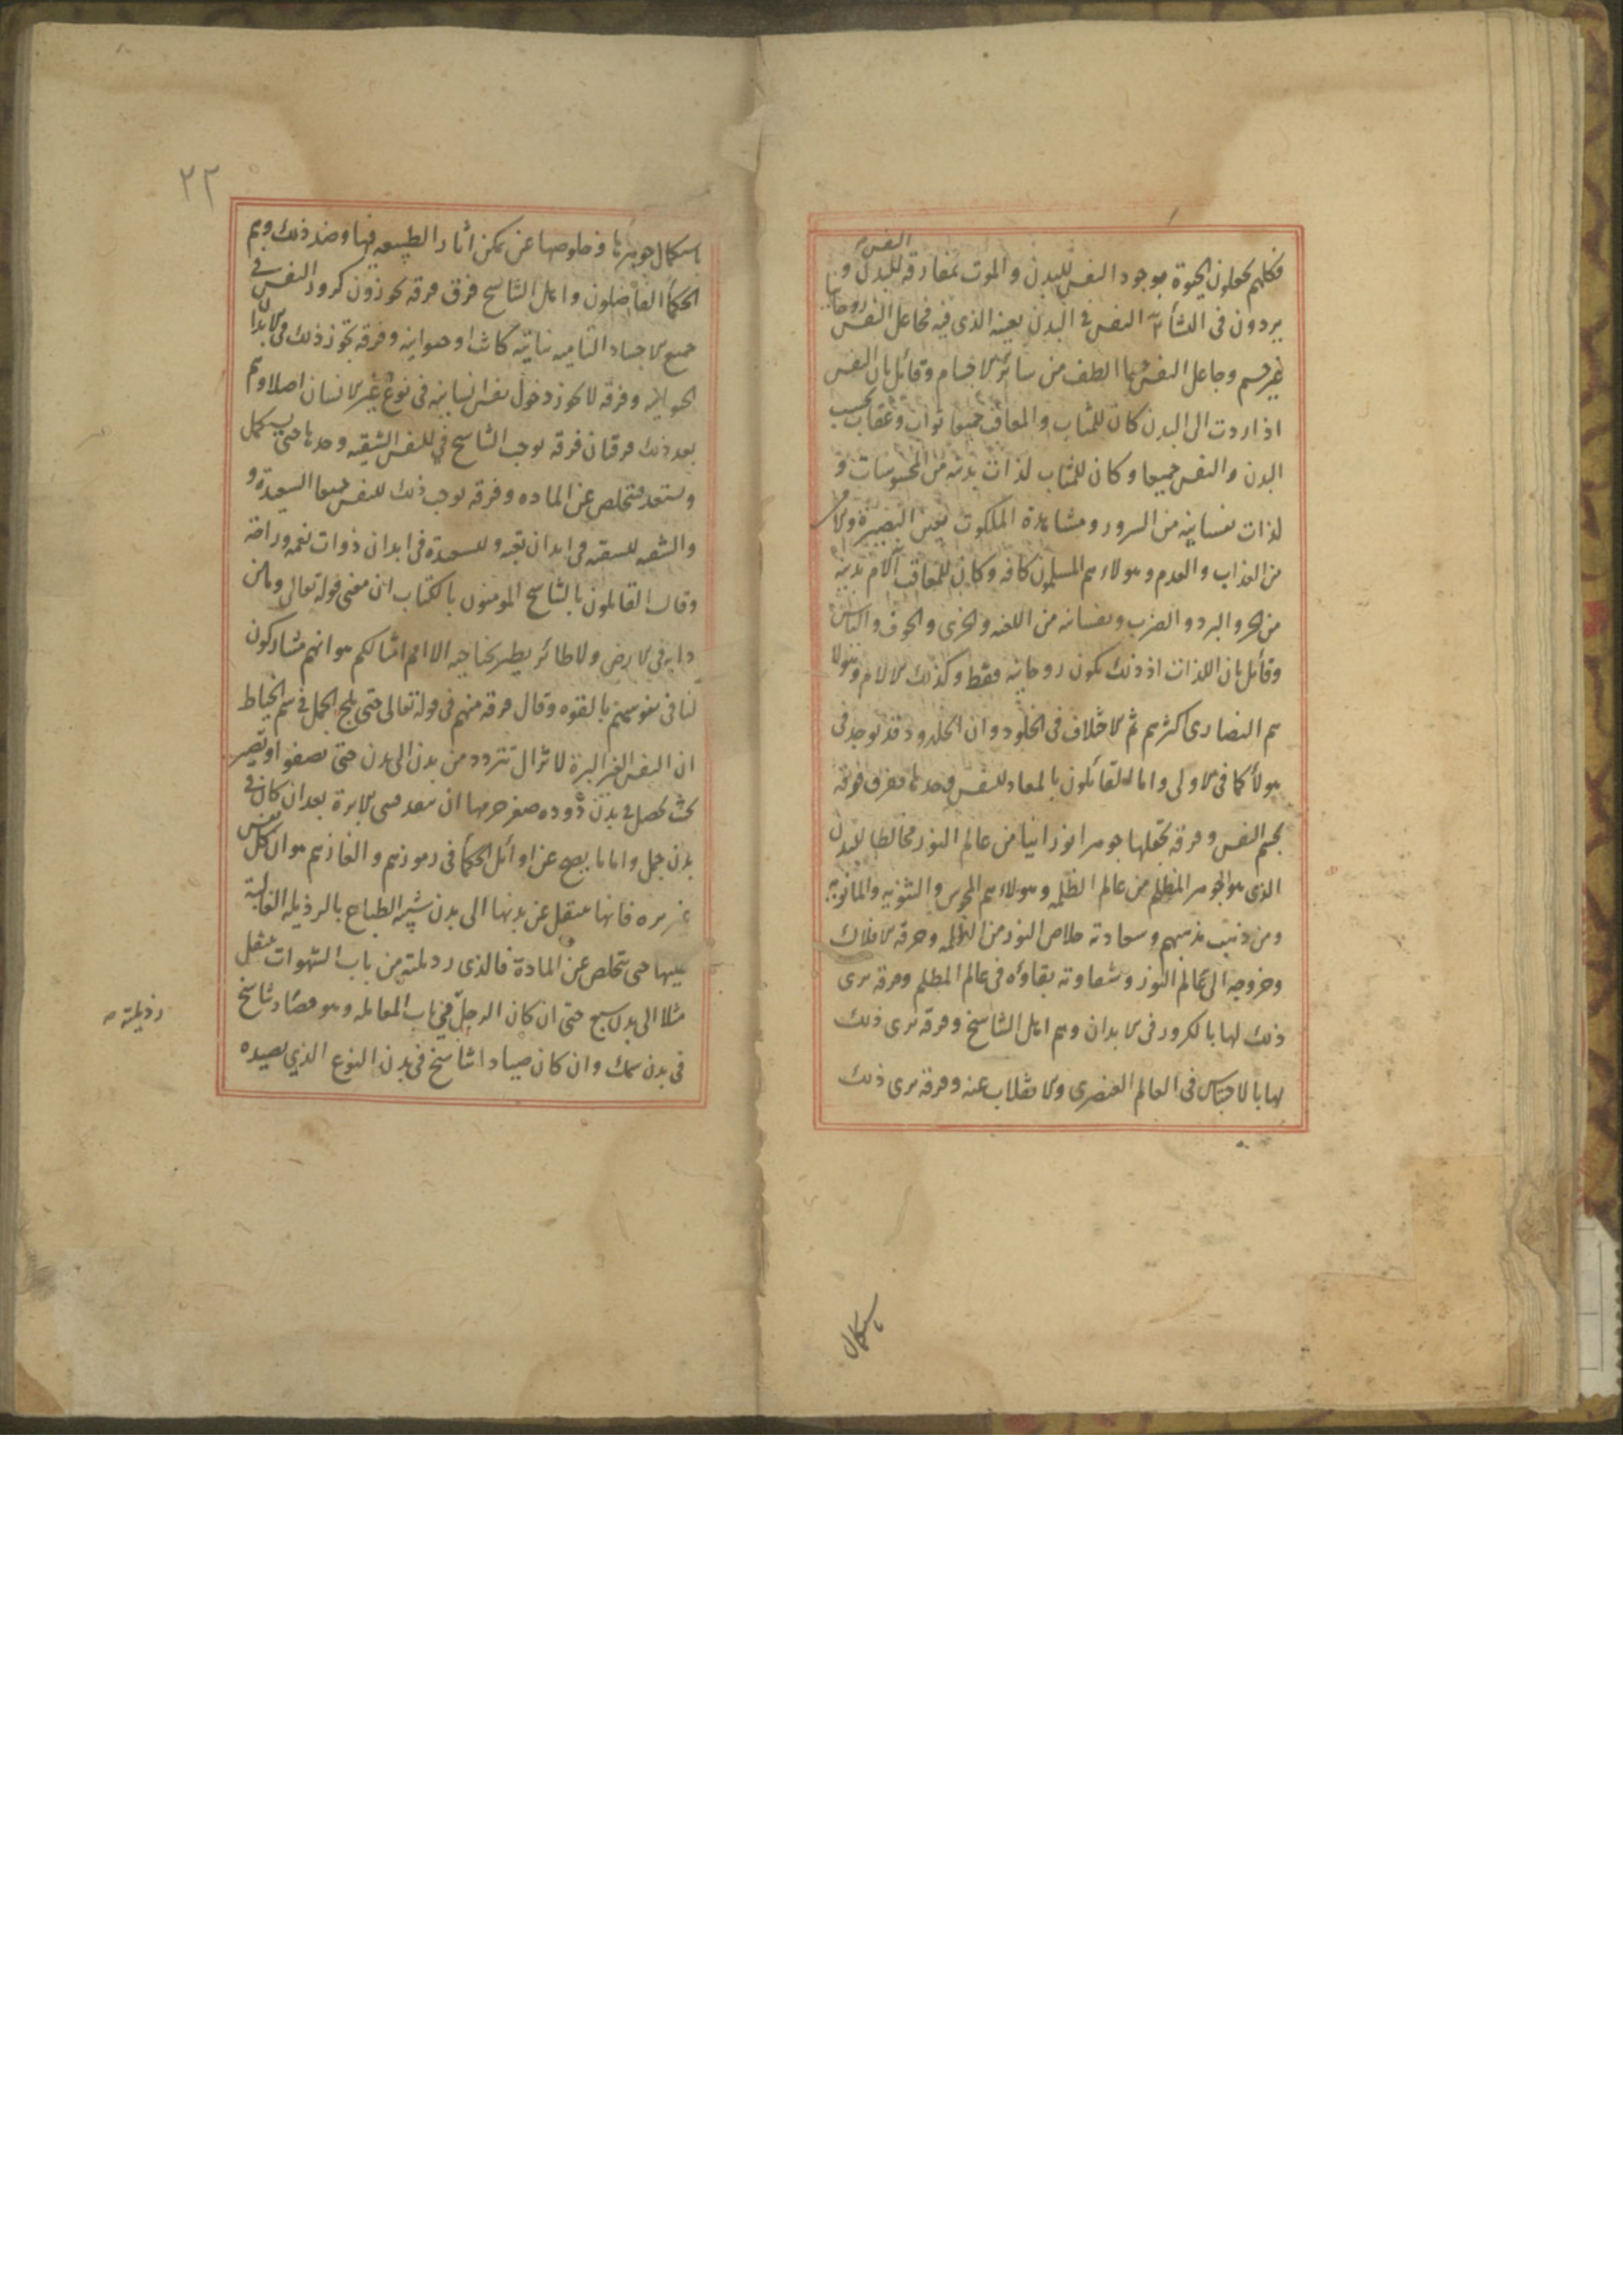 النفس
فكلهم يجعلون الحيوة بوجود النفس للبدن والموت بمفارقة للبدن و
يردون في النشأة النفس في البدن بعينه الذي فيه فجاعل النفس روحانيا
غير جسم وجاعل النفس جسما الطف من سائر الاجسام وقائل بان النفس
اذا ردت الى البدن كان للمثاب والمعاقب جميعا ثواب وعقاب بحسب
البدن والنفس جميعا وكان للمثاب لذات بدنية من المحسوسات و
لذات نفسانية من السرور ومشاهدة الملكوت بعين البصيرة والامن
من العذاب والعدم وهولاء هم المسلمون كافة وكان للمعاقب آلام بدنية
من الحر والبرد والضرب ونفسانية من اللعنة والخزي والخوف والياس
وقائل بان اللذات اذ ذلك تكون روحانية فقط وكذلك الالام وهولا
هم النصارى اكثرهم ثم الاختلاف في الخلود وان الخلود قد يوجد في
هولأ كما في الاولى واما القائلون بالمعاد للنفس وحدها ففرق فرقة
تجسم النفس وفرقة تجعلها جوهرا نورانيا من عالم النور مخالطا للبدن
الذي هو الجوهر المظلم من عالم الظلمة وهولاء هم المجوس والثنوية والمانوية
ومن ذهب مذهبهم وسعادته خلاص النور من الظلمة وخرقه الافلاك
وخروجه الى عالم النور وشقاوته بقاؤه في عالم المظلم وفرقة يرى
ذلك لها بالكرور في الابدان وهم اهل التناسخ وفرقة يرى ذلك
لها بالاحتباس في العالم العنصري والانقلاب عنه وفرقة يرى ذلك
باستكمال
٢٢
استكمال جوهرها وخلوصها عن تمكن أثار الطبيعة فيها وضد ذلك وهم
الحكمأ الفاضلون واهل التناسخ فرق فرقة يجوزون كرور النفس في
جميع الاجساد النامية نباتية كانت او حيوانية وفرقة تجوز ذلك في الابدان
الحيوانية وفرقة لا يجوز دخول نفس انسانية في نوع غير الانسان اصلا وهم
بعد ذلك فرقتان فرقة يوجب التناسخ في للنفس الشقية وحدها حتى يستكمل
ويستعد فتخلص عن المادة وفرقة يوجب ذلك للنفس جميعا السعيدة و
والشقية للشقية في ابدان تعبة وللسعيدة في ابدان ذوات نعمة وراحة
وقال القائلون بالتناسخ المومنون بالكتاب ان معنى قوله تعالى وما من
دابة في الارض ولا طائر يطير بجناحيه الا امم امثالكم هو انهم مشاركون
لنا في نفوسهم بالقوة وقال فرقة منهم في قوله تعالى حتى يلج الجمل في سم الخياط
ان النفس الغير البرة لا تزال تتردد من بدن الى بدن حتى تصفو او تصير
بحيث تحصل في بدن دوده صغر جرمها ان ينفذ في سم الابرة بعد ان كان في
بدن جمل واما ما يصح عن اوائل الحكمأ في رموزهم والغازهم هو ان كل نفس
غير برة فانها تنتقل عن بدنها الى بدن شبيه الطباع بالرذيلة الغالبة
عليها حتى يتخلص عن المادة فالذي رذيلته من باب الشهوات ينتقل
مثلا الى بدن سبع حتى ان كان الرجل في باب المعاملة وهو قصاد تناسخ
في بدن سمك وان كان صيادا تناسخ في بدن النوع الذي يصيده
رذيلته